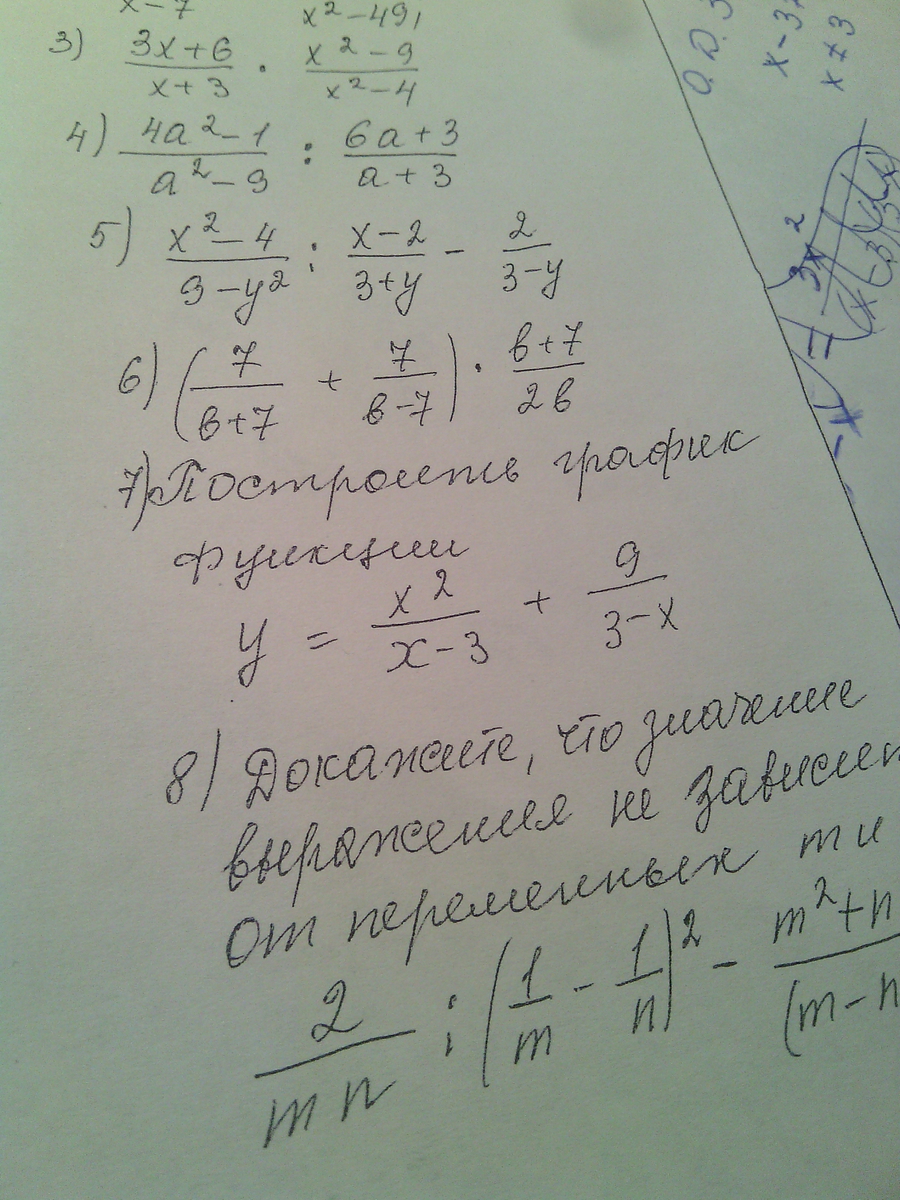 x-7 x²-49,
3) (3x+6)/(x+3) · (x²-9)/(x²-4)
4) (4a²-1)/(a²-9) : (6a+3)/(a+3)
5) (x²-4)/(9-y²) : (x-2)/(3+y) - 2/(3-y)
6) (7/(в+7) + 7/(в-7)) · (в+7)/(2в)
7) Построить график
функции
y = x²/(x-3) + 9/(3-x)
8) Докажите, что значение
выражения не зависит
от переменных m и
2/(mn) : (1/m - 1/n)² - (m²+n)/(m-n
x≠3
3x²